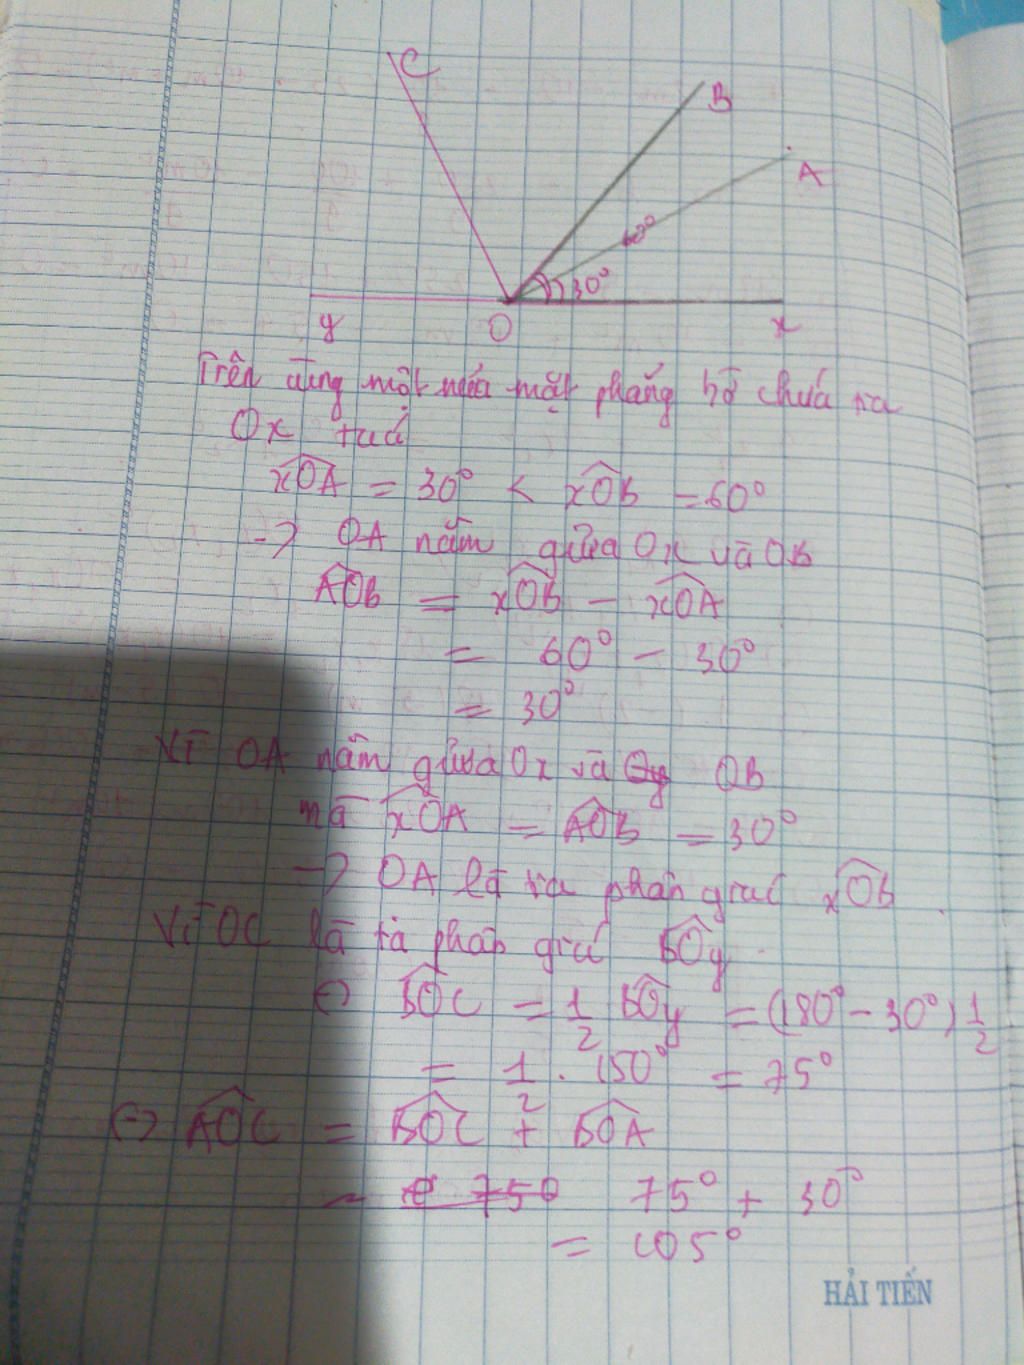 C
B
A
60°
30°
y O x
Trên cùng một nửa mặt phẳng bờ chứa tia
Ox
xOA = 30° < xOB = 60°
-> OA nằm giữa Ox và OB
AOB = xOB - xOA
= 60° - 30°
= 30°
Vì OA nằm giữa Ox và Oy OB
mà xOA = AOB = 30°
-> OA là tia phân giác xOB.
Vì OC là tia phân giá BOy
<=> BOC = 1/2 BOy = (180° - 30°) 1/2
= 1/2 . 150° = 75°
<=> AOC = BOC + BOA
= 75° + 30°
= 105°
HẢI TIẾN